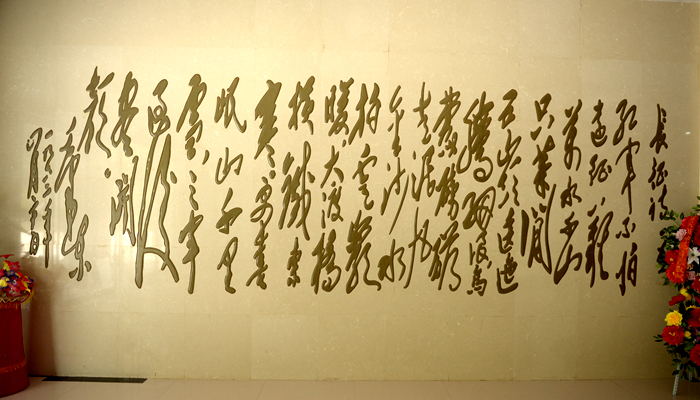 長征詩
紅軍不怕
遠征難
萬水千山
只等閑
五嶺逶迤
騰細浪烏
蒙磅礴
走泥丸
金沙水
拍雲崖
暖大渡橋
橫鐵索
寒更喜
岷山千里
雪三軍
過後
盡開
顏
毛澤東